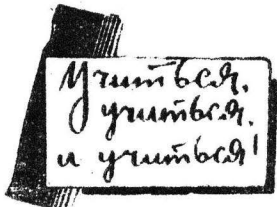 Учиться,
учиться,
и учиться!